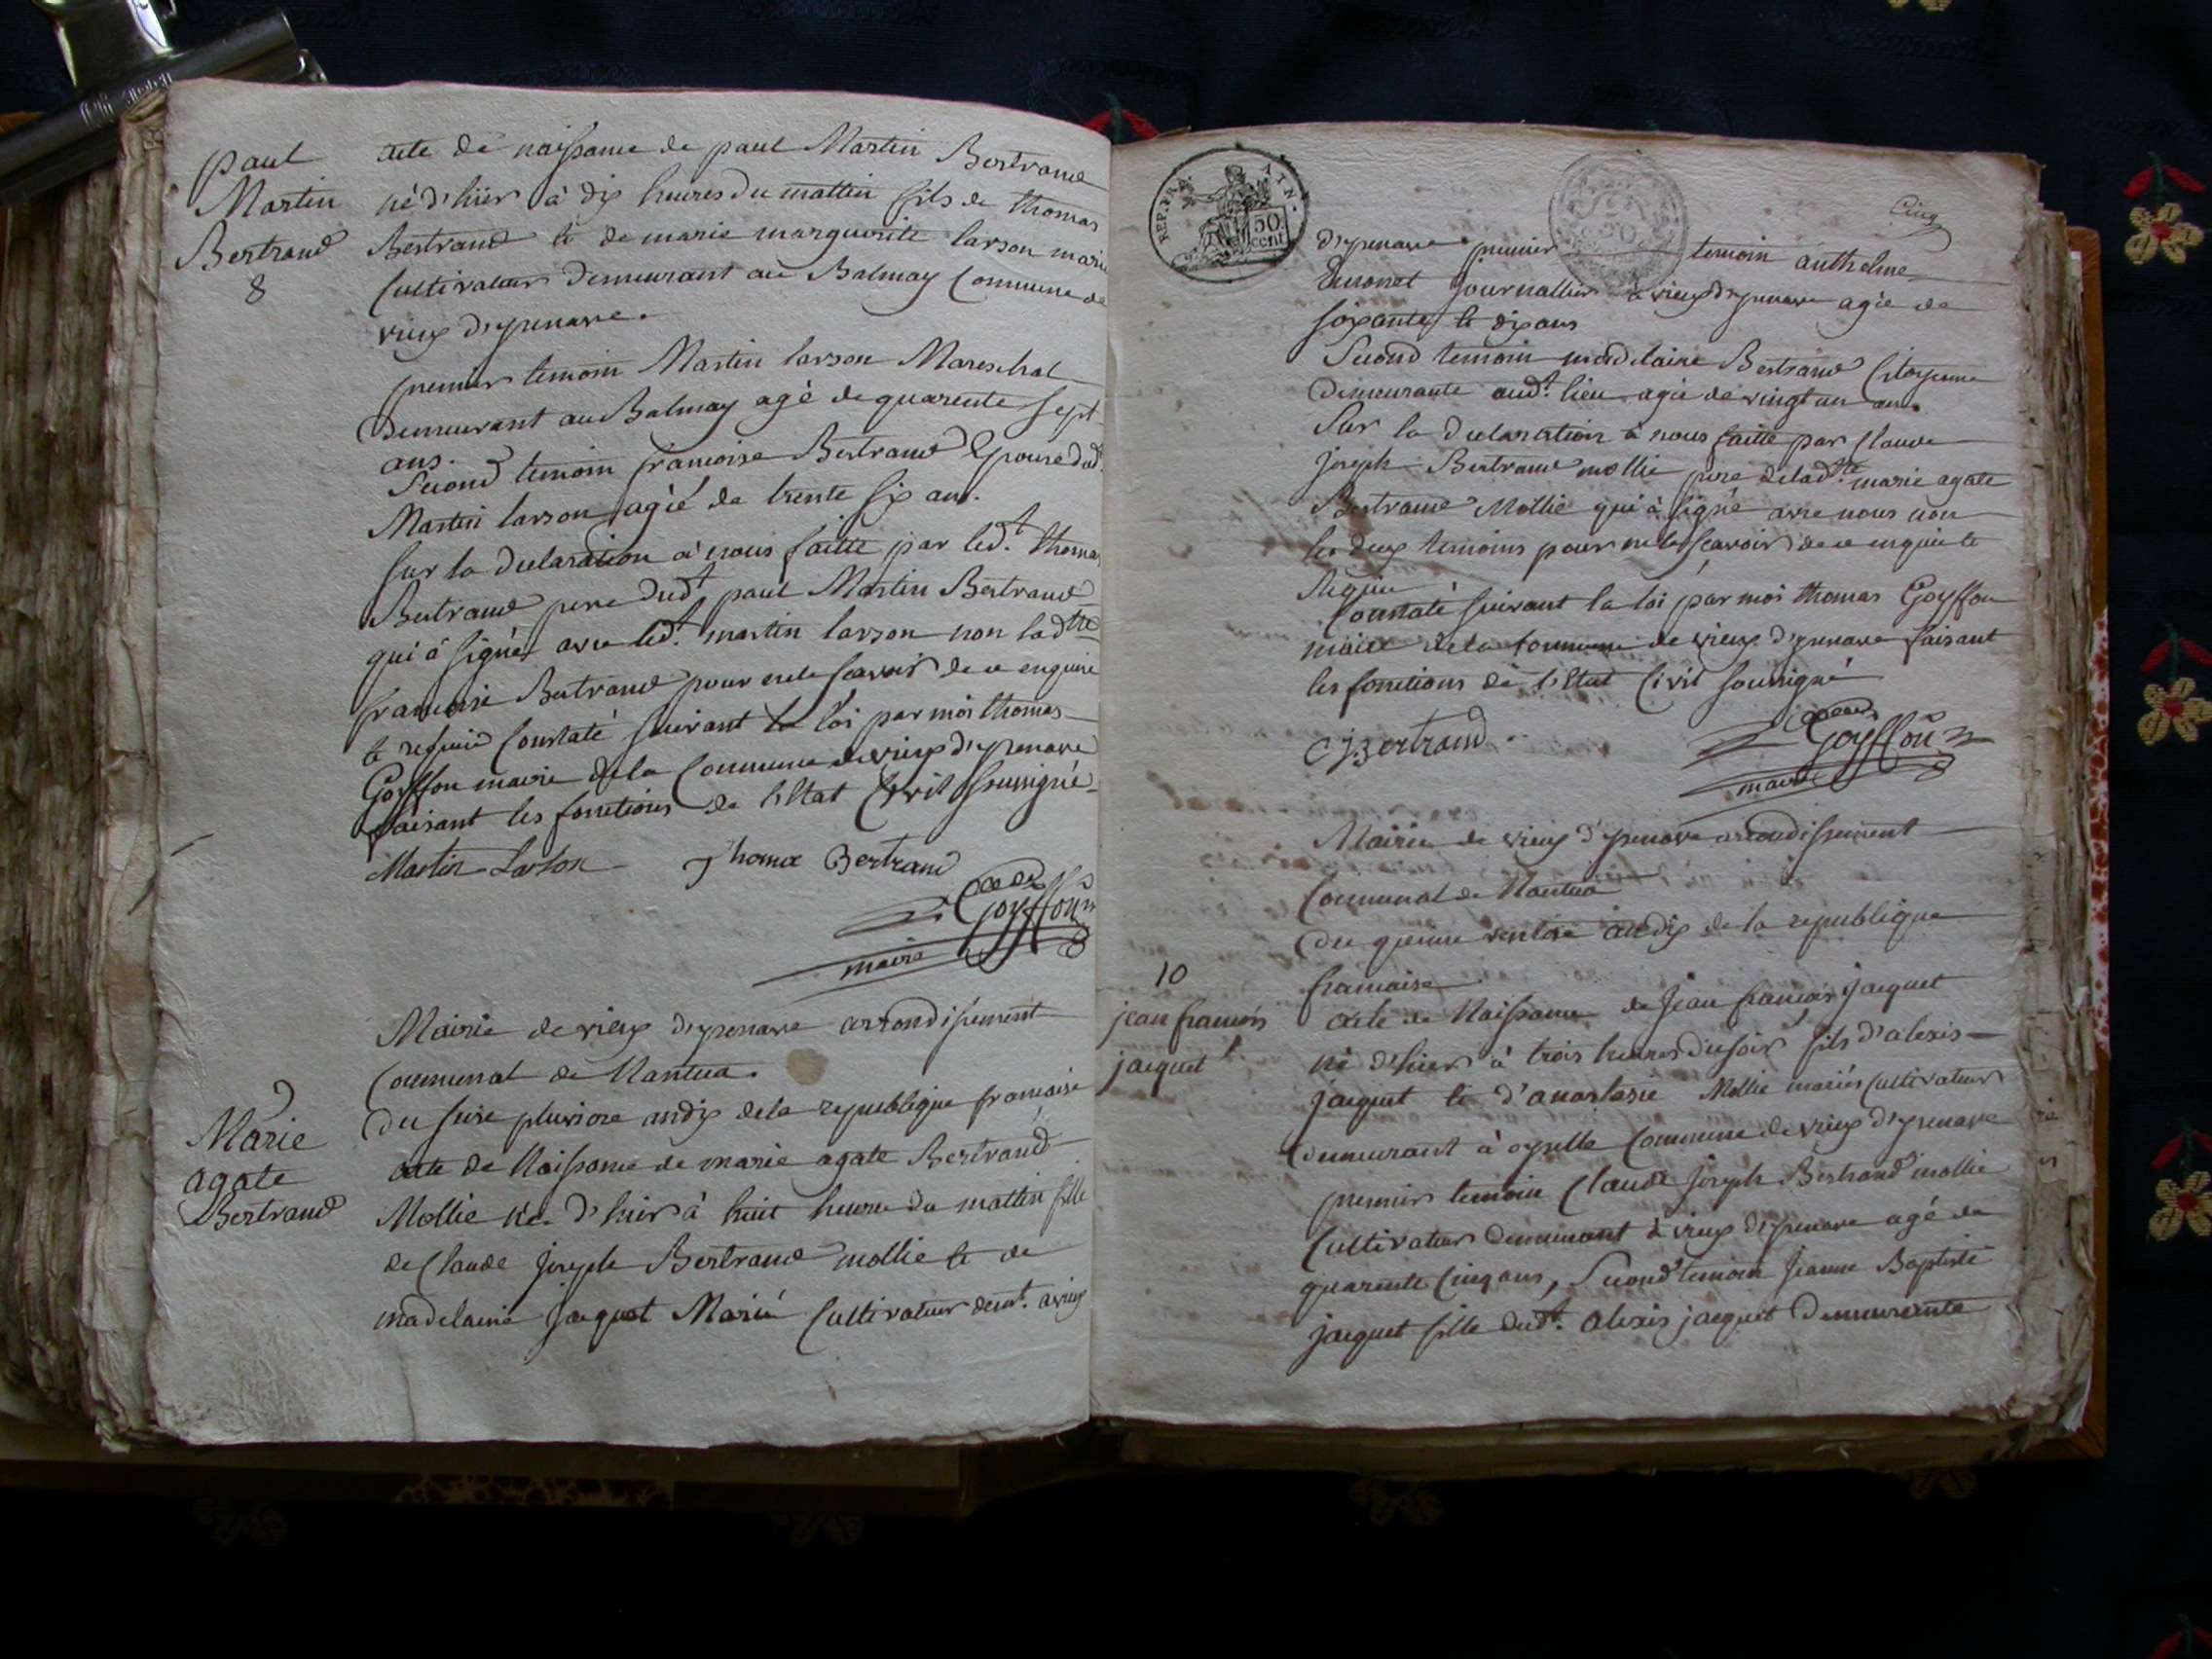 paul
Martin
Bertrand
8
acte de naissance de paul Martin Bertrand
né d'hier à dix heures du mattin fils de thomas
Bertrand et de marie marguerite larson marié
Cultivateur demeurant au Balmay Commune de
vieux d'yzenave.
premier temoin Martin larson Mareschal
demeurant au Balmay agé de quarente sept
ans.
Second temoin francoise Bertrand Epouse dud.
Martin larson agée de trente six ans.
sur la declaration à nous faitte par led.t thomas
Bertrand pere dud.t paul Martin Bertrand
qui à signé avec led.t martin larson non lad.tte
francoise Bertrand pour ne le scavoir de ce enquise
et requise Constaté suivant la loi par moi thomas
Goyffon maire de la Commune de vieux d'yzenave
faisant les fonctions de l'Etat Civil soussigné
Martin Larson Thomas Bertrand
Goyffon
maire
Mairie de vieux d'yzenave arrondissement
Communal de Nantua.
9
Marie
agate
Bertrand
du seise pluviose an dix de la republique francaise
acte de Naissance de marie agate Bertrand
Mollié née d'hier à huit heure du mattin fille
de Claude joseph Bertrand mollié et de
madelaine jacquet Marié Cultivateur demt. a vieux
REP. FRA. AIN.
50 cent
Cinq
d'yzenave premier temoin anthelme
journallier à vieux d'yzenave agée de
soixante et dix ans
Second temoin madelaine Bertrand Citoyenne
demeurante aud.t lieu agée de vingt un ans.
Sur la declaration à nous faitte par Claude
joseph Bertrand mollié pere de lad.tte marie agate
Bertrand Mollié qui à signé avec nous non
les deux temoins pour ne le scavoir de ce enquis et
requis
Constaté suivant la loi par moi thomas Goyffon
maire de la Commune de vieux d'yzenave faisant
les fonctions de l'Etat Civil soussigné
CJBertrand
Goyffon
maire
Mairie de vieux d'yzenave arrondissement
Communal de Nantua
du quinze ventose an dix de la republique
francaise
10
jean francois
jacquet
acte de Naissance de jean francois jacquet
né d'hier à trois heures du soir fils d'alexis
jacquet et d'anastasie Mollié mariés Cultivateur
demeurant à oyselle Commune de vieux d'yzenave
premier temoin Claude joseph Bertrand mollié
Cultivateur demeurant à vieux d'yzenave agé de
quarente Cinq ans, Second temoin jeanne Baptiste
jacquet fille dud.t alexis jacquet demeurante